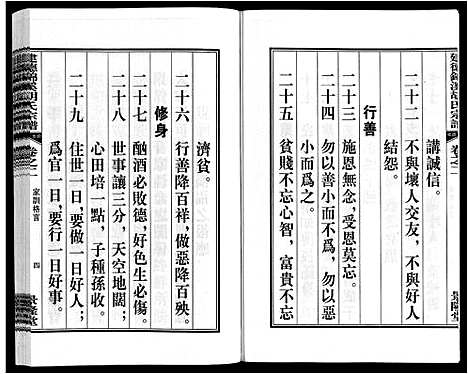 建德錦溪胡氏宗譜
卷之二
景隆堂
講誠信。
二十二 不與壞人交友，不與好人
結怨。
行善
二十三 施恩無念，受恩莫忘。
二十四 勿以善小而不爲，勿以惡
小而爲之。
二十五 貧賤不忘心智，富貴不忘
濟貧。
二十六 行善降百祥，做惡降百殃。
修身
二十七 酗酒必敗德，好色生必傷。
二十八 世事讓三分，天空地闊；
心田培一點，子種孫收。
二十九 住世一日，要做一日好人；
爲官一日，要行一日好事。
建德錦溪胡氏宗譜
卷之二
家訓格言
四
景隆堂